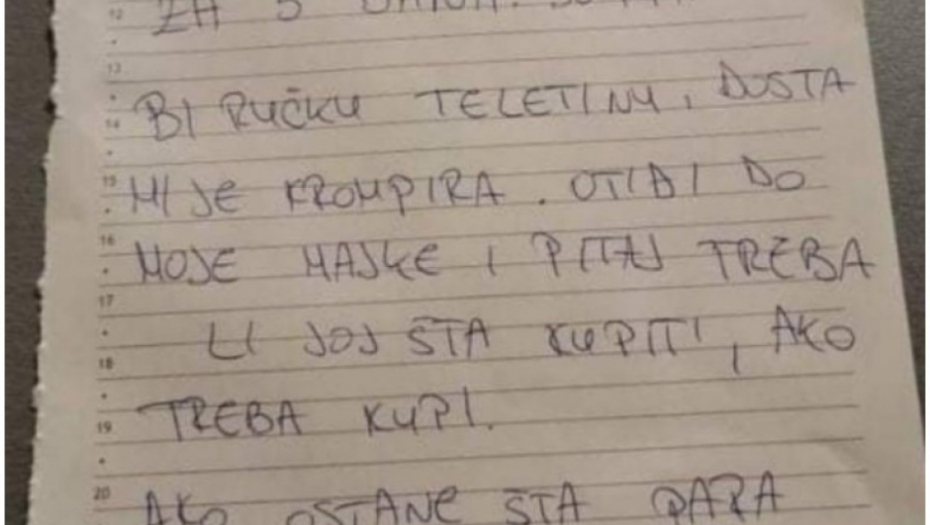 12 ZA 5
13
14 BI RUČKU TELETINU, DOSTA
15 MI JE KROMPIRA. OTIĐI DO
16 MOJE MAJKE I PITAJ TREBA
17
18 LI JOJ ŠTA KUPITI, AKO
19 TREBA KUPI.
20 AKO OSTANE ŠTA PARA